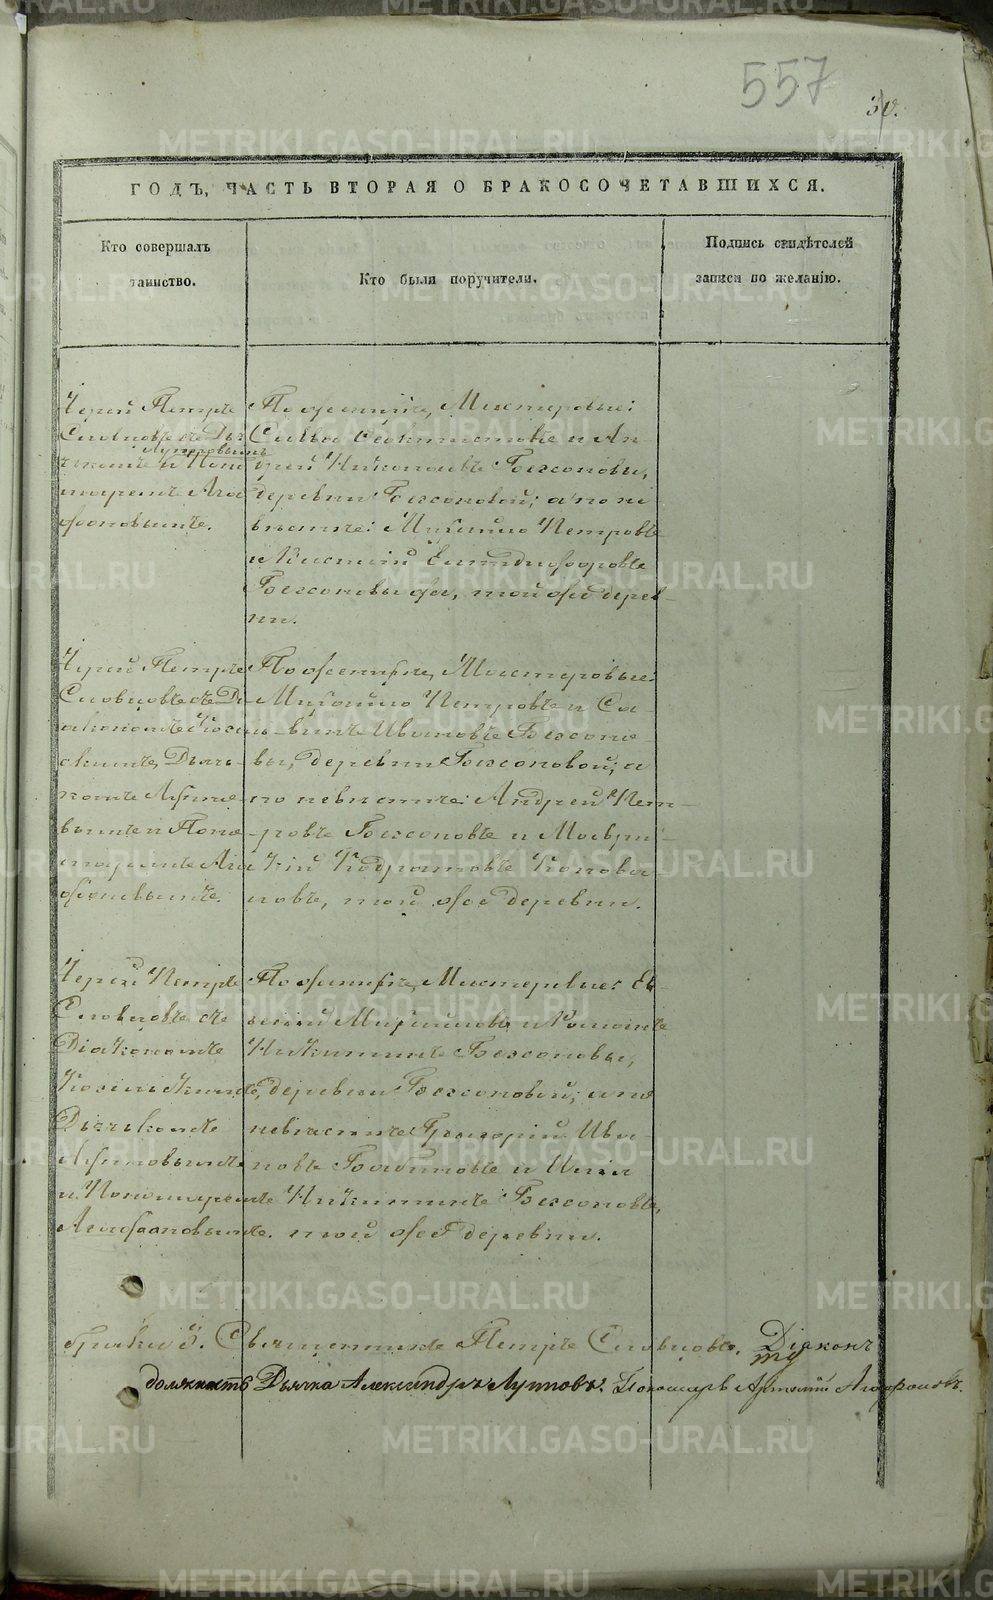 557
30.
ГОДЪ, ЧАСТЬ ВТОРАЯ О БРАКОСОЧЕТАВШИХСЯ.
Кто совершалъ
таинство.
Кто были поручители.
Подпись свидѣтелей
записи по желанію.
Іерей Петръ
Словцовъ съ Дья
Лупповымъ
чкомъ и Поно
маремъ Ага
фоновымъ.
По женихѣ, Мастеровые:
Савва Феоктистовъ и Ан-
дрей Николаевъ Безсоновы,
деревни Безсоновой; а по не
вѣстѣ: Михайло Петровъ
и Василій Никифоровъ
Безсоновы же, той же дерев-
ни.
Іерей Петръ
Словцовъ съ Ді-
акономъ
Дьяч-
комъ
вымъ и Поно
маремъ Ага
фоновымъ.
По женихѣ, Мастеровые:
Михайло Петровъ и Са-
ввинъ Ивановъ Безсоно-
вы, деревни Безсоновой; а
по невѣстѣ: Андрей Пет-
ровъ Безсоновъ и
Кодратовъ Конова-
ловъ, той же деревни.
Іерей Петръ
Словцовъ съ
Діакономъ
Дьячкомъ
и Пономаремъ
Агафоновымъ.
По женихѣ, Мастеровые: Ев-
сеній Михайловъ и Романъ
Никитинъ Безсоновы,
деревни Безсоновой; а по
невѣстѣ: Григорій Ива-
новъ и Илья
Никитинъ Безсоновъ,
той же деревни.
Священникъ Петръ Словцовъ. Діаконъ
должность Дьячка Александръ Лупповъ. Пономарь Артемій Агафоновъ.
METRIKI.GASO-URAL.RU